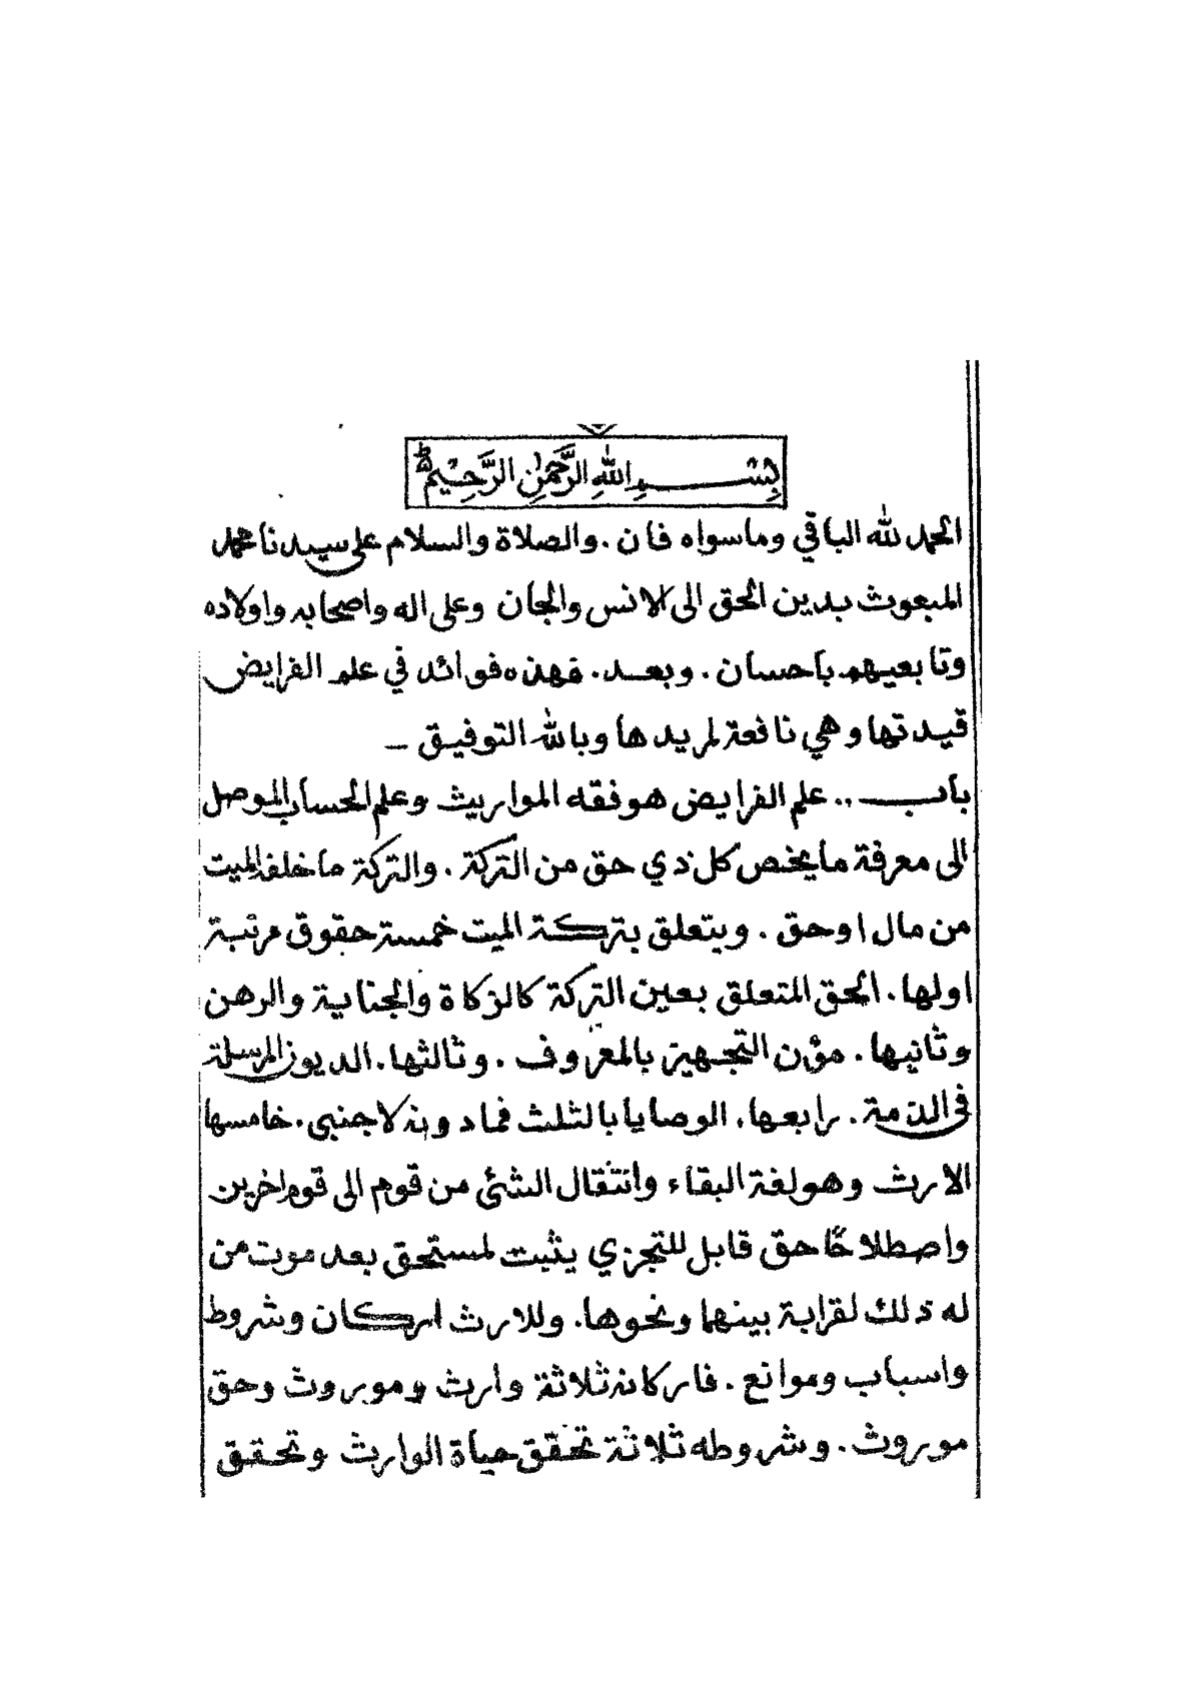 بِسْــــمِ اللهِ الرَّحْمٰنِ الرَّحِيْمِ
الحمد لله الباقي وماسواه فان . والصلاة والسلام على سيدنا محمد
المبعوث بدين الحق الى الانس والجان وعلى اله واصحابه واولاده
وتابعيهم باحسان . وبعد . فهذه فوائد في علم الفرايض
قيدتها وهي نافعة لمريدها وبالله التوفيق –
باب .. علم الفرايض هو فقه المواريث وعلم الحساب الموصل
الى معرفة مايخص كل ذي حق من التركة . والتركة ما خلفه الميت
من مال اوحق . ويتعلق بتركة الميت خمسة حقوق مرتبة
اولها . الحق المتعلق بعين التركة كالزكاة والجناية والرهن
وثانيها . مؤن التجهيز بالمعروف . وثالثها . الديون المرسلة
فى الذمة . رابعها . الوصايا بالثلث فمادونه لاجنبي . خامسها
الارث وهو لغة البقاء وانتقال الشئ من قوم الى قوم اخرين
واصطلاحًا حق قابل للتجزي يثبت لمستحق بعد موت من
له ذلك لقرابة بينهما ونحوها . وللارث اركان وشروط
واسباب وموانع . فاركانه ثلاثة وارث وموروث وحق
موروث . وشروطه ثلاثة تحقق حياة الوارث وتحقيق